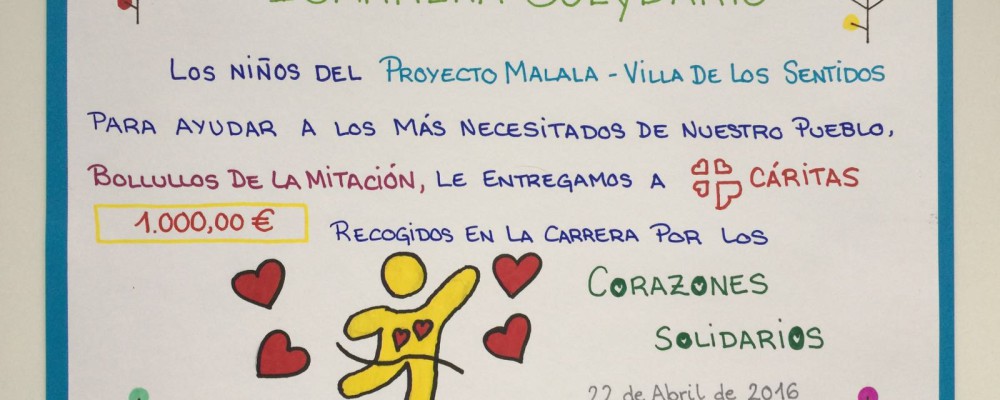 LOS NIÑOS DEL PROYECTO MALALA - VILLA DE LOS SENTIDOS
PARA AYUDAR A LOS MÁS NECESITADOS DE NUESTRO PUEBLO,
BOLLULLOS DE LA MITACIÓN, LE ENTREGAMOS A CÁRITAS
1.000,00 € RECOGIDOS EN LA CARRERA POR LOS
CORAZONES
SOLIDARIOS
22 de Abril de 2016